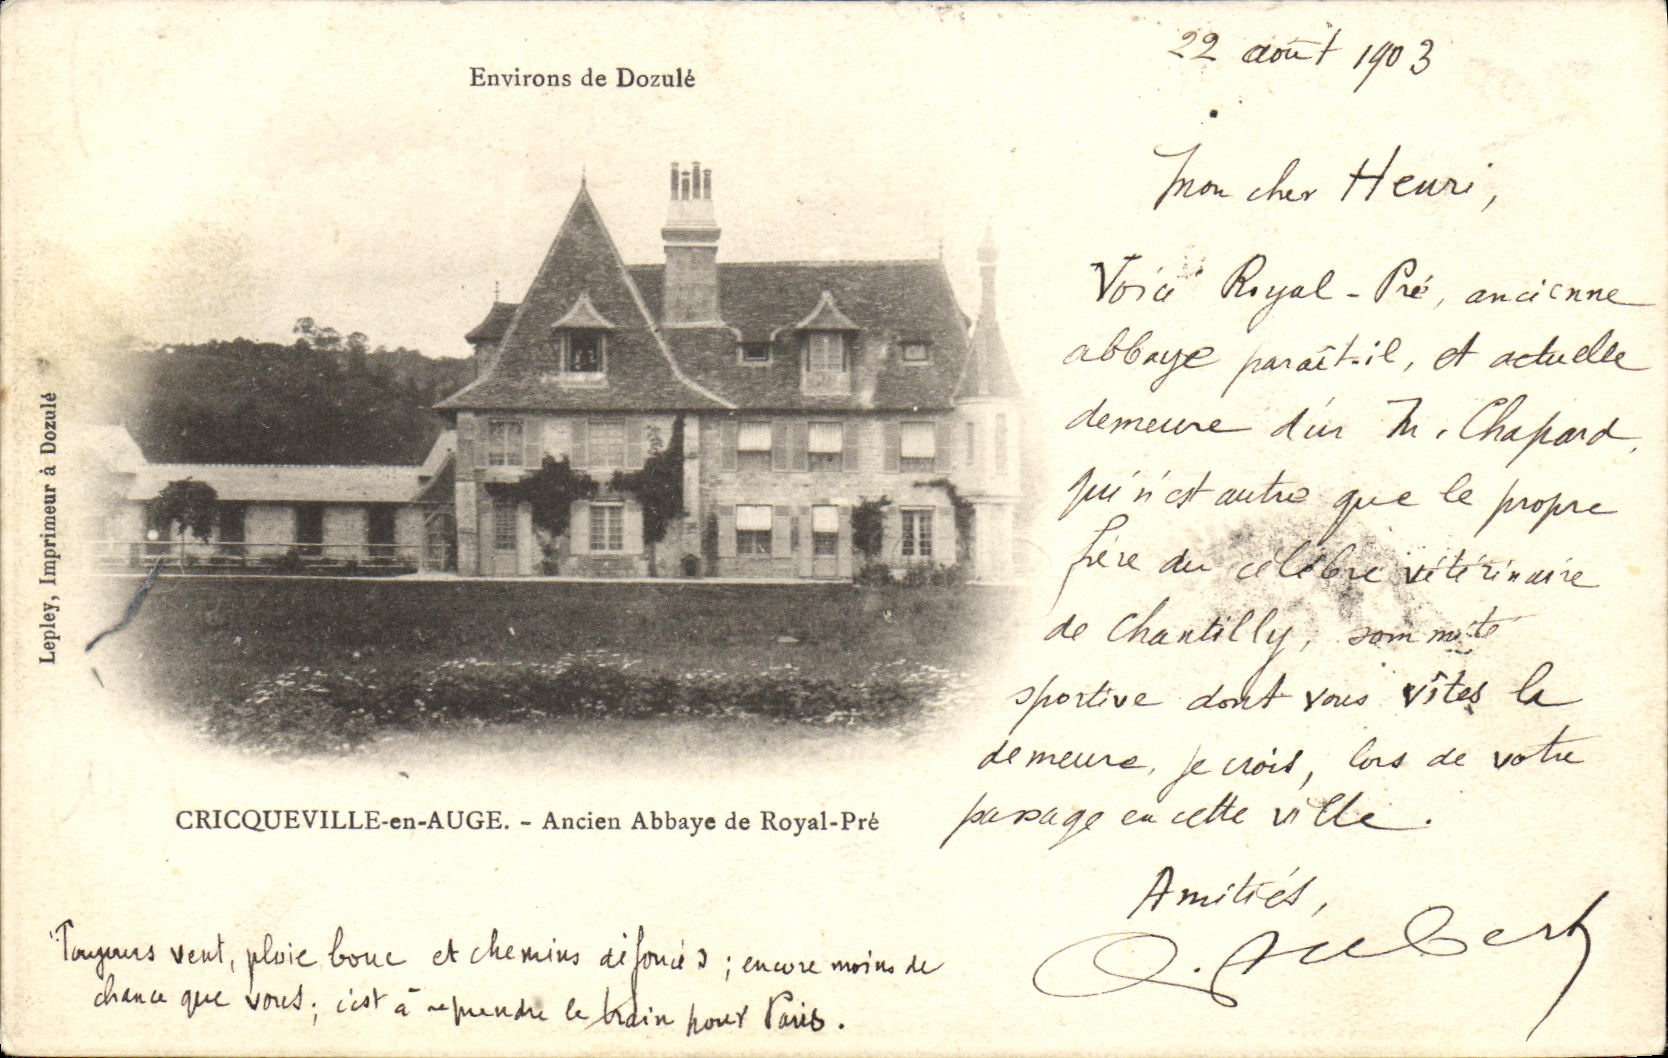 Environs de Dozulé
Lepley, Imprimeur à Dozulé
CRICQUEVILLE-en-AUGE. - Ancien Abbaye de Royal-Pré
22 août 1903
Mon cher Henri,
Voici Royal-Pré, ancienne
abbaye paraît-il, et actuelle
demeure d'un M. Chapard,
qui n'est autre que le propre
frère du célèbre vétérinaire
de Chantilly, sommité
sportive dont vous vîtes la
demeure, je crois, lors de votre
passage en cette ville.
Amitiés,
Aubert
Toujours vent, pluie boue et chemins défoncés ; encore moins de
chance que vous ; c'est à reprendre le train pour Paris.